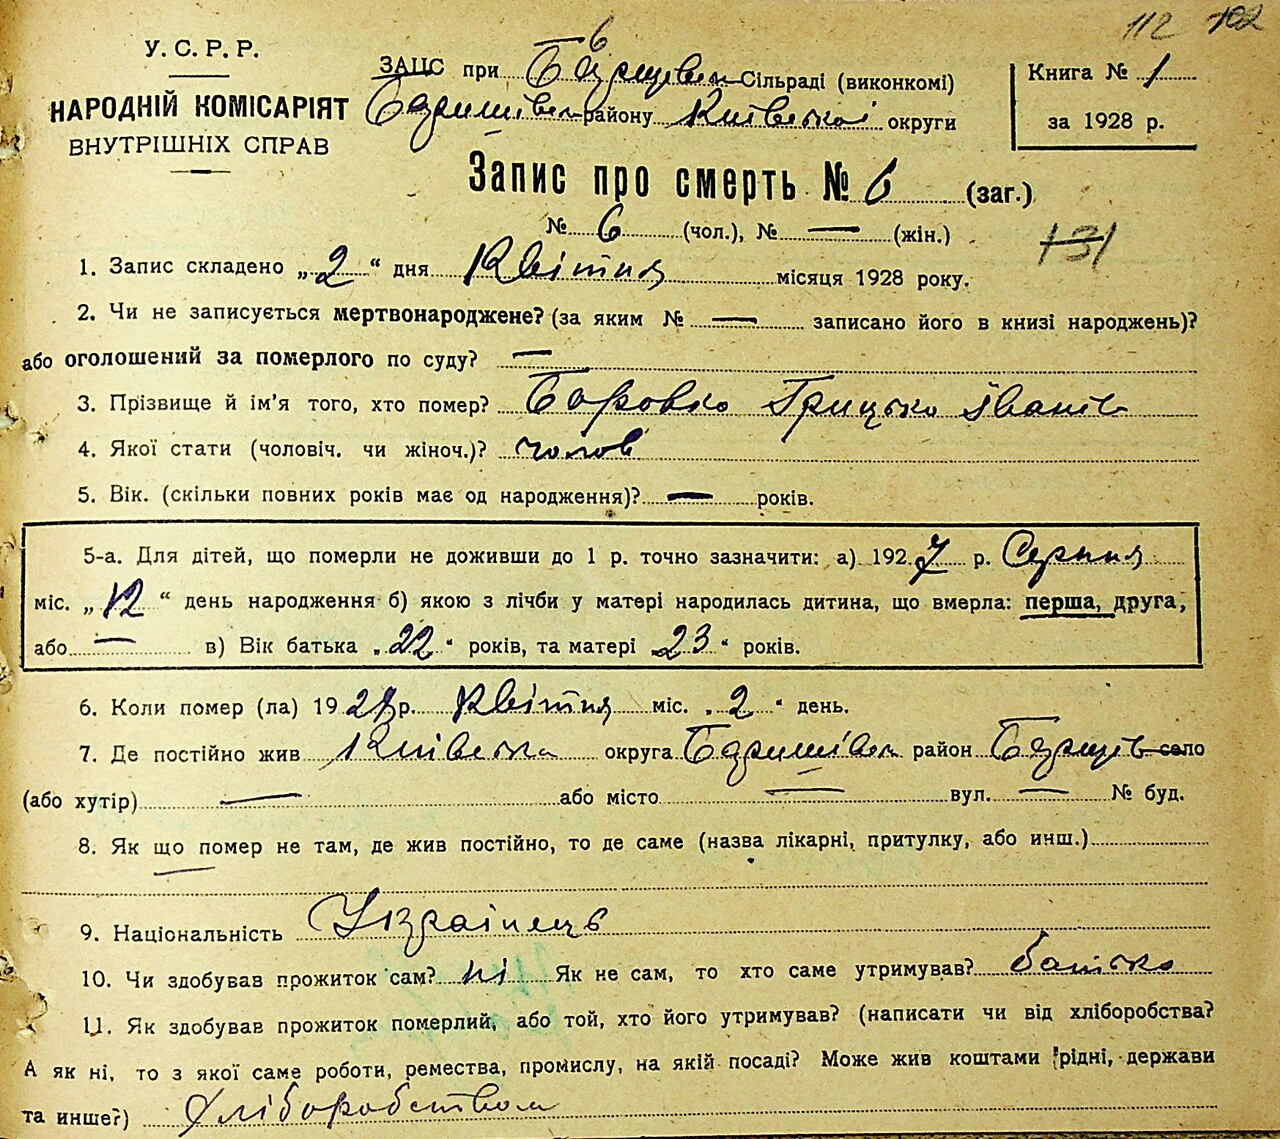 112 102
У. С. Р. Р.
НАРОДНІЙ КОМІСАРІЯТ
ВНУТРІШНІХ СПРАВ
ЗАЦС при Сільраді (виконкомі)
Баришівск району Київської округи
Книга № 1
за 1928 р.
Запис про смерть № 6 (заг.)
№ 6 (чол.), № — (жін.)
131
1. Запис складено „2“ дня Квітня місяця 1928 року.
2. Чи не записується мертвонароджене? (за яким № — записано його в книзі народжень)?
або оголошений за померлого по суду? —
3. Прізвище й ім'я того, хто помер? Боровко Грицько Іванів
4. Якої стати (чоловіч. чи жіноч.)? чолов
5. Вік. (скільки повних років має од народження)? — років.
5-а. Для дітей, що померли не доживши до 1 р. точно зазначити: а) 1927 р. Серпня
міс. „12“ день народження б) якою з лічби у матері народилась дитина, що вмерла: перша, друга,
або — в) Вік батька „22“ років, та матері „23“ років.
6. Коли помер (ла) 1928 р. Квітня міс. „2“ день.
7. Де постійно жив Київська округа Баришівск район село
(або хутір) — або місто — вул. — № буд.
8. Як що помер не там, де жив постійно, то де саме (назва лікарні, притулку, або инш.)
9. Національність Українець
10. Чи здобував прожиток сам? ні Як не сам, то хто саме утримував? батько
11. Як здобував прожиток померлий, або той, хто його утримував? (написати чи від хліборобства?
А як ні, то з якої саме роботи, ремества, промислу, на якій посаді? Може жив коштами рідні, держави
та инше?) Хліборобством